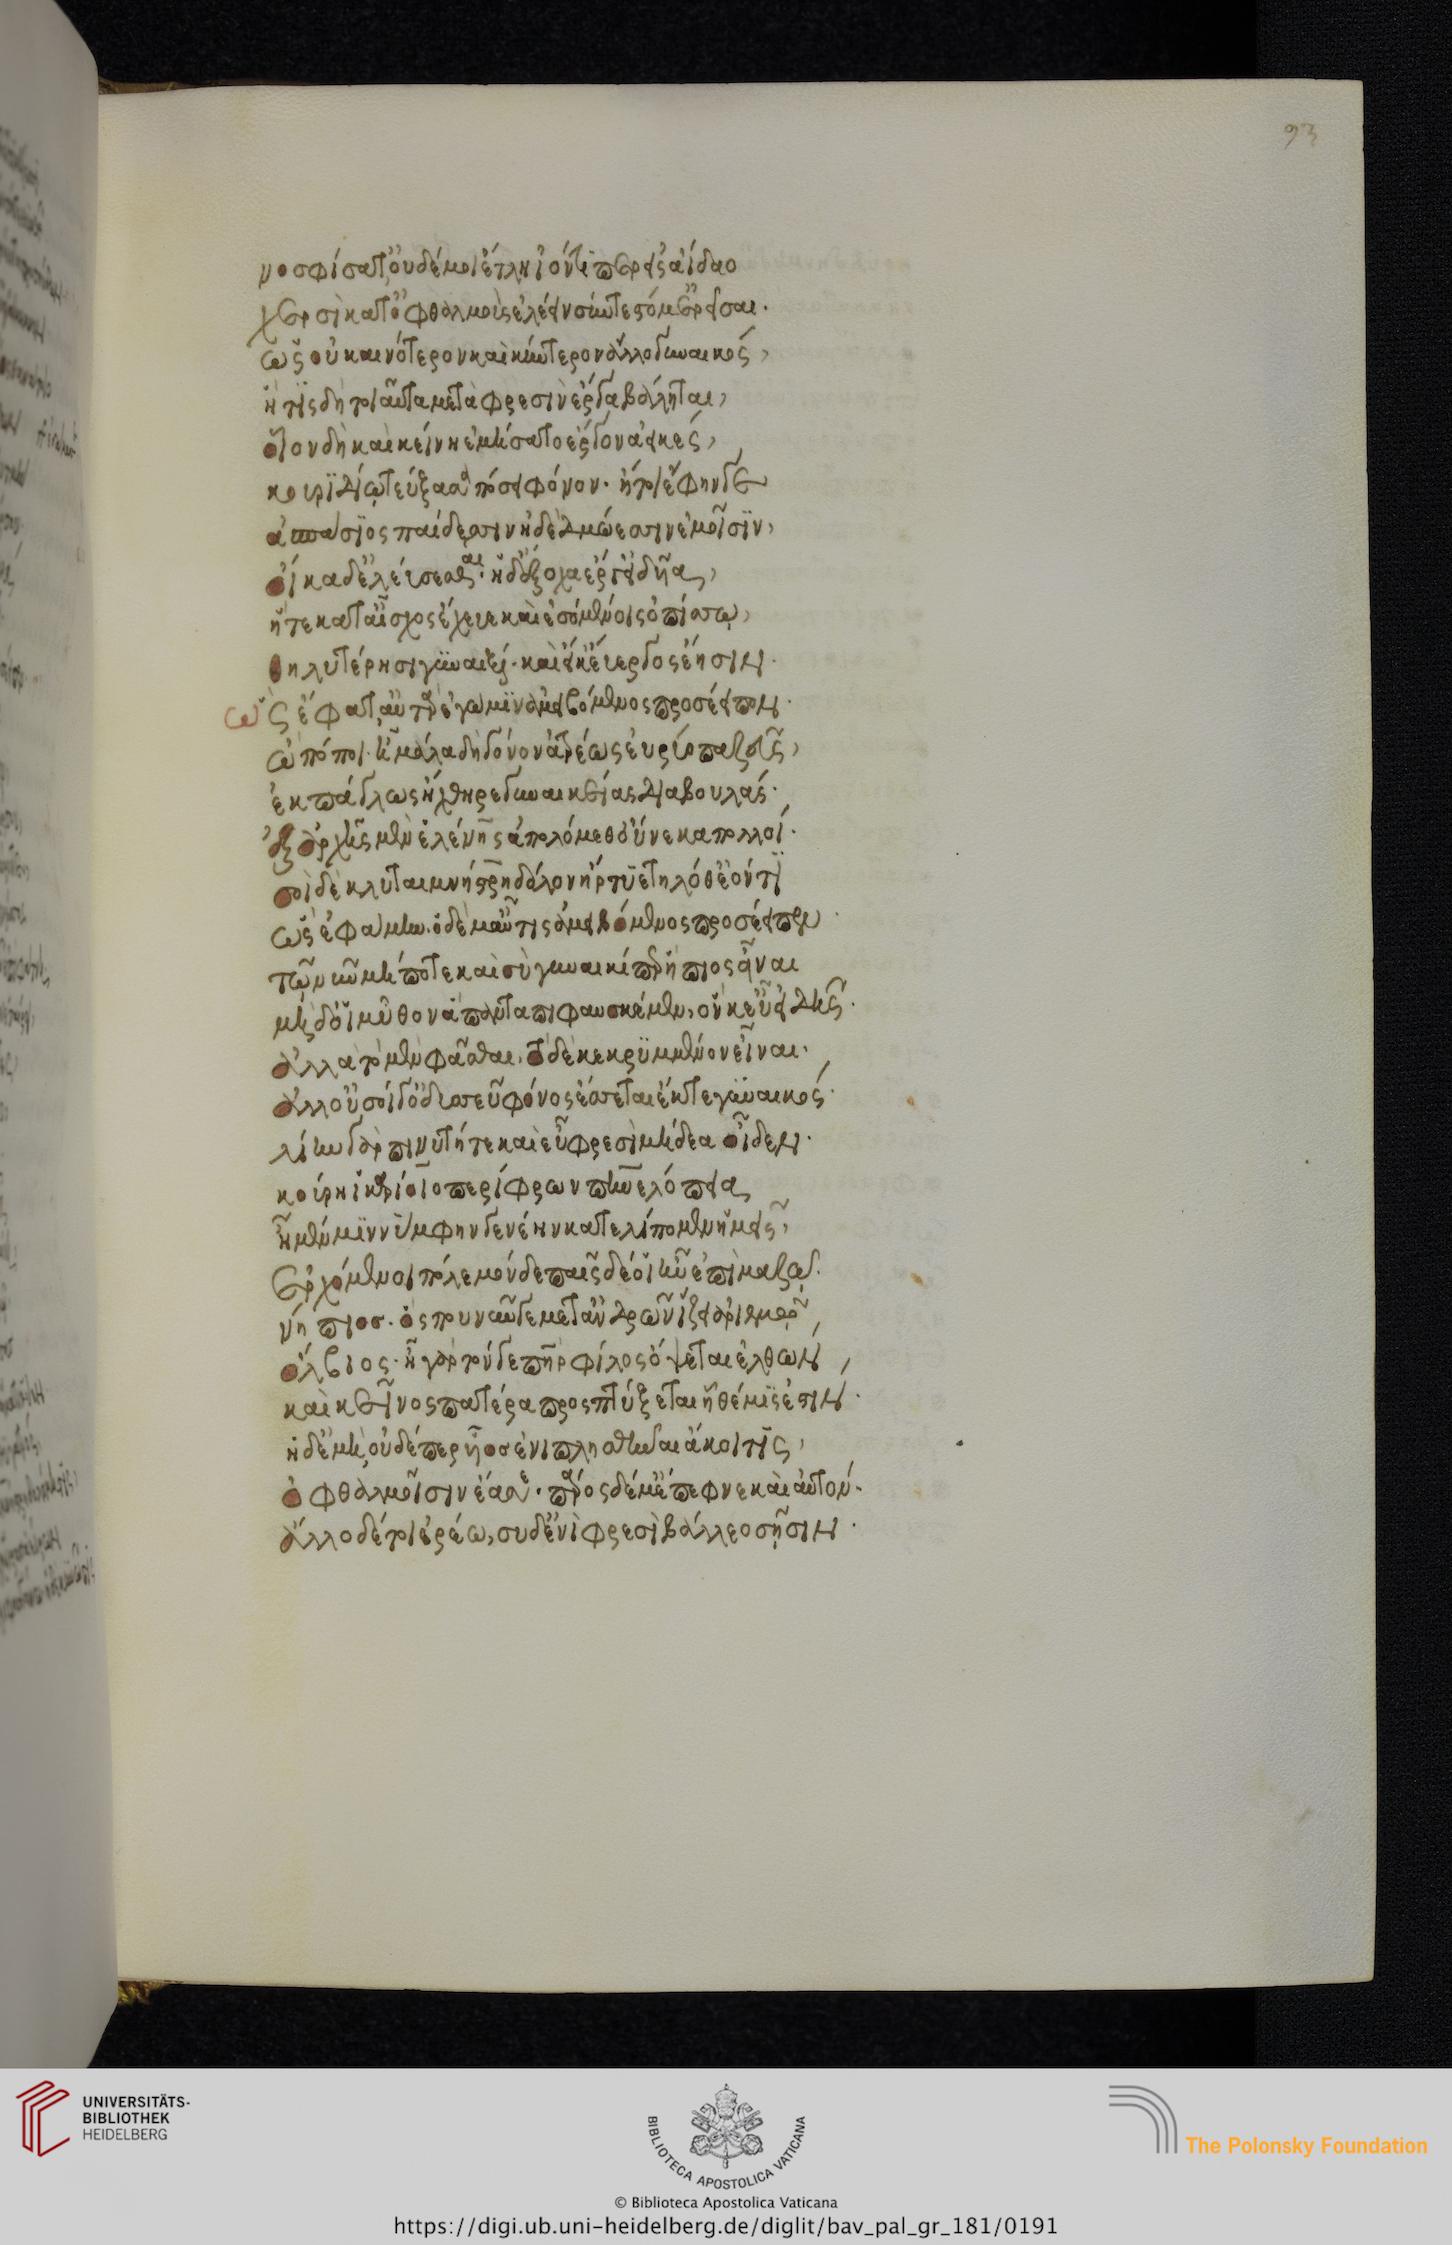 93
νοσφίσατ' οὐδέ μοι ἔτλη ἰόντι περ εἰς ἀίδαο
χερσὶ κατ' ὀφθαλμοὺς ἑλέειν σύν τε στόμ' ἐρεῖσαι·
ὣς οὐκ αἰνότερον καὶ κύντερον ἄλλο γυναικός,
ἥτις δὴ τοιαῦτα μετὰ φρεσὶν ἔργα βάληται,
οἷον δὴ καὶ κείνη ἐμήσατο ἔργον ἀεικές,
κουριδίῳ τεύξασα πόσει φόνον· ἤτοι ἔφην γε
ἀσπάσιος παίδεσσιν ἠδὲ δμώεσσιν ἐμοῖσιν,
οἴκαδ' ἐλεύσεσθαι· ἡ δ' ἔξοχα ἔργ' εἰδυῖα,
ᾗ τε κατ' αἶσχος ἔχευε καὶ ἐσομένοισ ὀπίσσω,
θηλυτέρῃσι γυναιξί· καὶ εἴ κ' εὐεργὸς ἔῃσιν·
ὣς ἔφατ' αὐτὰρ ἐγώ μιν ἀμειβόμενος προσέειπον·
ὢ πόποι· ἦ μάλα δὴ γόνον ἀτρέως εὐρύοπα ζεὺς,
ἐκπάγλως ἤχθηρε γυναικείας διὰ βουλάς·
ἐξ ἀρχῆς· μὲν ἑλένης ἀπολόμεθ' οὕνεκα πολλοί·
σοὶ δὲ κλυταιμνήστρη δόλον ἤρτυε τηλόθ' ἐόντι
ὣς ἐφάμην· ὁ δέ μ' αὖτις ἀμειβόμενος προσέειπεν·
τῷ νῦν μήποτε καὶ σὺ γυναικί περ ἤπιος εἶναι
μηδ' οἱ μῦθον ἅπαντα πιφαυσκέμεν, ὅν κ' εὖ εἰδῇς·
ἀλλὰ τὸ μὲν φάσθαι, τὸ δὲ κεκρυμμένον εἶναι·
ἀλλ' οὐ σοίγ' ὀδυσσεῦ φόνος ἔσσεται ἔκ τε γυναικός·
λίην γὰρ πινυτή τε καὶ εὖ φρεσὶ μήδεα οἶδεν·
κούρη ἰκαρίοιο περίφρων πηνελόπεια
ἦ μέν μιν νύμφην γε νέην κατελίπομεν ἡμεῖς,
ἐρχόμενοι πόλεμόνδε παῖς δέ οἱ ἦν ἐπὶ μαζῷ·
νήπιος· ὅς που νῦν γε μετ' ἀνδρῶν ἵζει ἀριθμῷ,
ὄλβιος· ἦ γὰρ τόνγε πατὴρ φίλος ὄψεται ἐλθών,
καὶ κεῖνος πατέρα προσπτύξεται ἣ θέμις ἐστίν·
ἡ δ' ἐμὴ, οὐδέ περ υἷος ἐνιπλησθῆναι ἄκοιτις,
ὀφθαλμοῖσιν ἔασε· πάρος δέ με πέφνε καὶ αὐτόν·
ἄλλο δέ τοι ἐρέω, συ δ' ἐνὶ φρεσὶ βάλλεο σῇσιν·
UNIVERSITÄTS-
BIBLIOTHEK
HEIDELBERG
BIBLIOTECA APOSTOLICA VATICANA
The Polonsky Foundation
© Biblioteca Apostolica Vaticana
https://digi.ub.uni-heidelberg.de/diglit/bav_pal_gr_181/0191